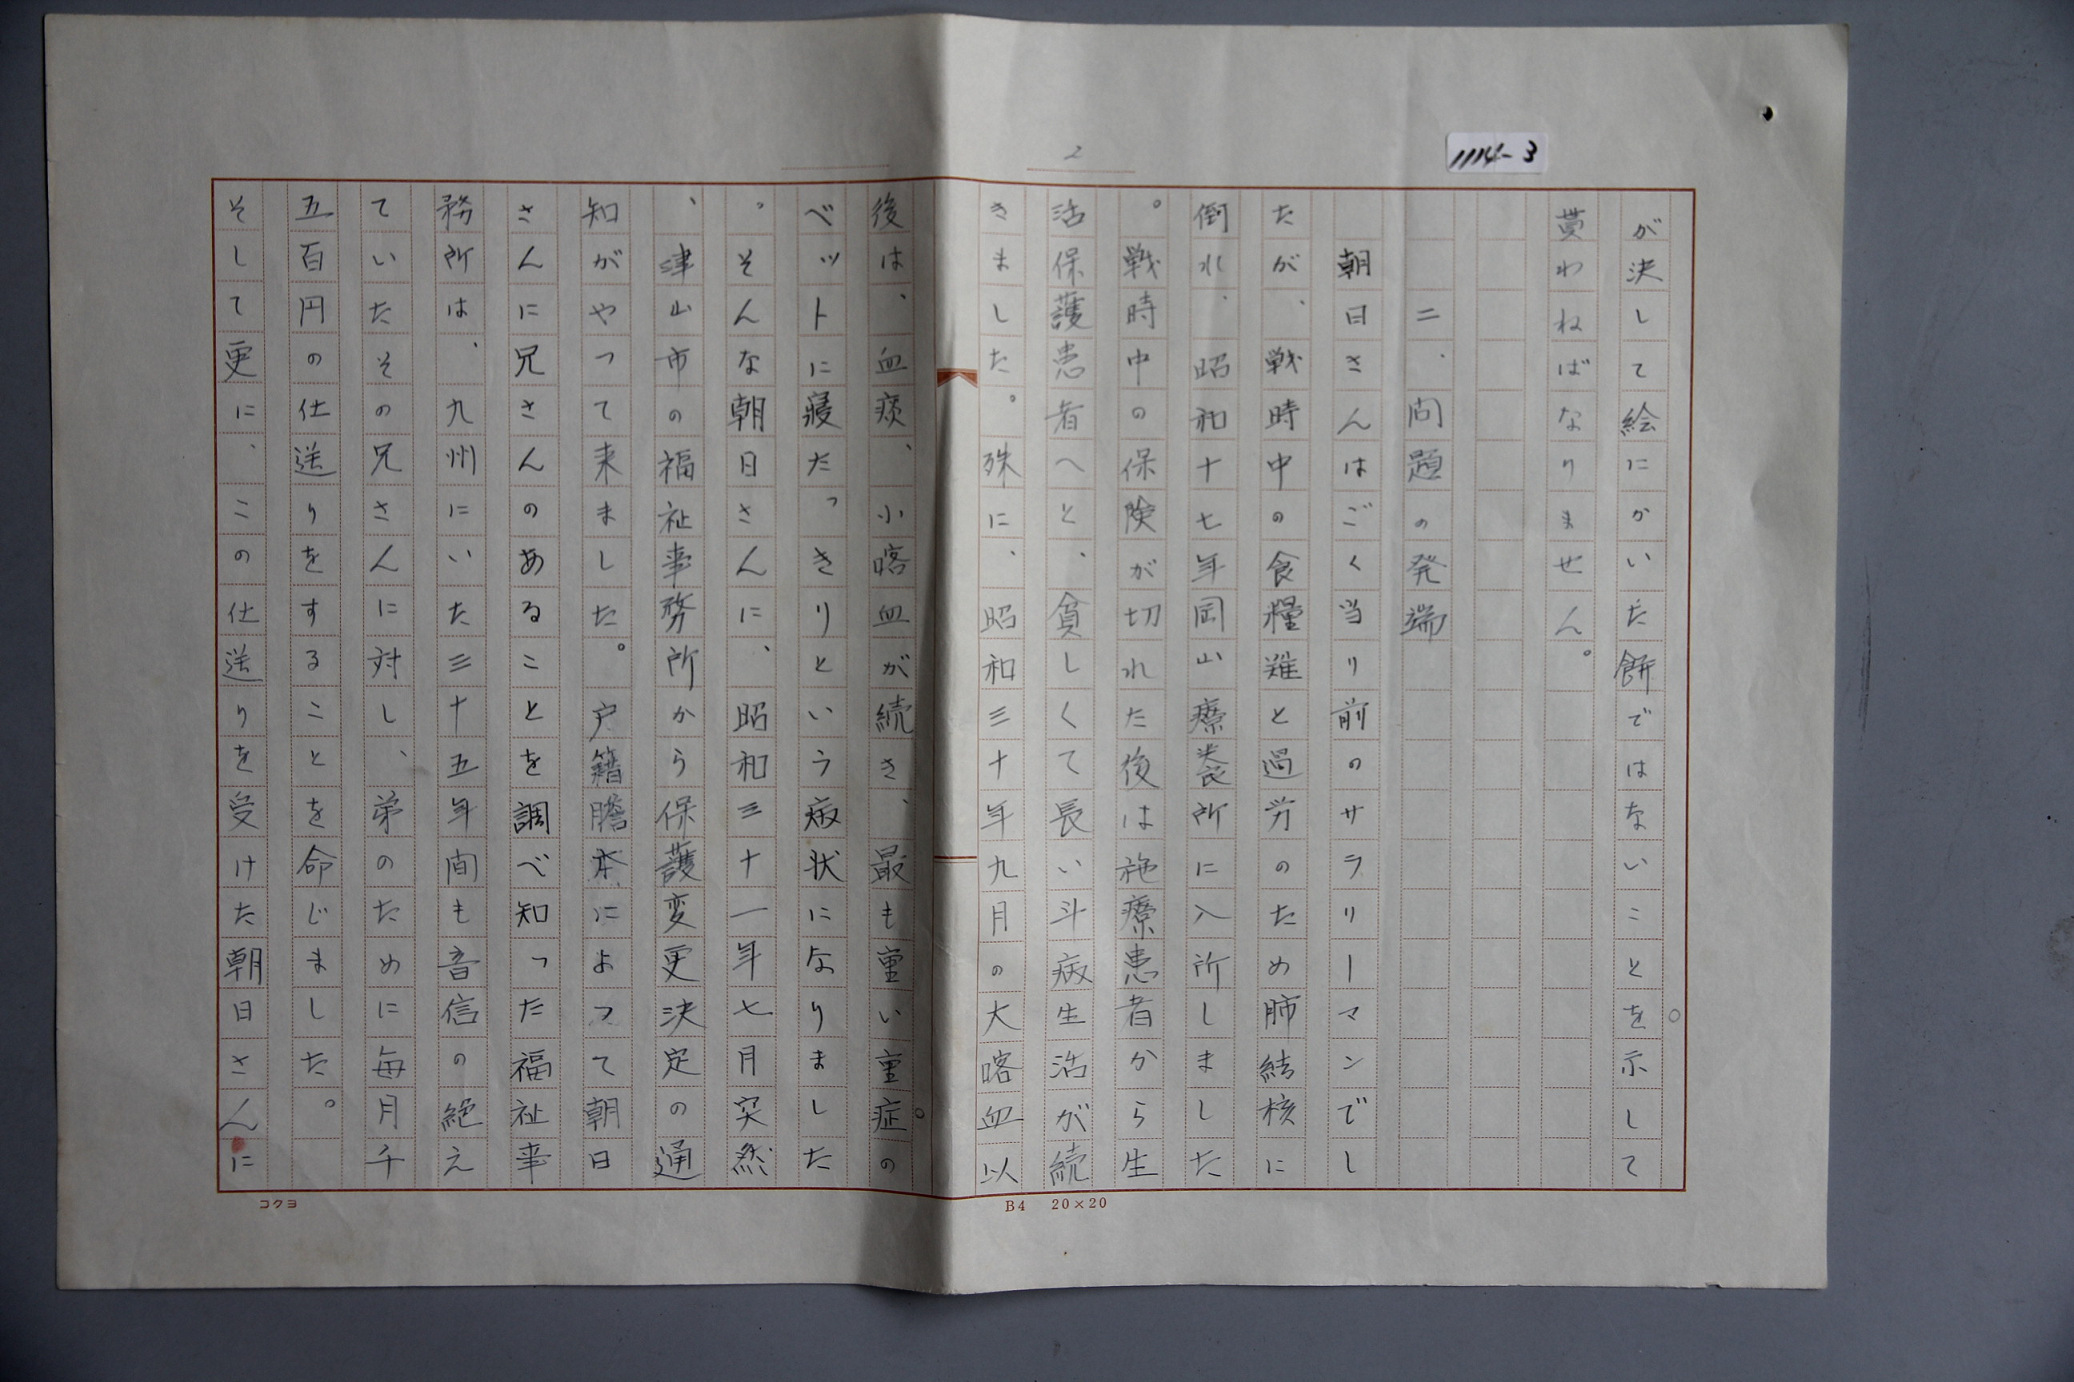 1114-3
2
が決して絵にかいた餅ではないことを示して
貰わねばなりません。
二、問題の発端
朝日さんはごく当り前のサラリーマンでし
たが、戦時中の食糧難と過労のため肺結核に
倒れ、昭和十七年岡山療養所に入所しました
。戦時中の保険が切れた後は施療患者から生
活保護患者へと、貧しくて長い斗病生活が続
きました。殊に、昭和三十年九月の大喀血以
後は、血痰、小喀血が続き、最も重い重症。の
ベットに寝たっきりという病状になりました
。そんな朝日さんに、昭和三十一年七月突然
、津山市の福祉事務所から保護変更決定の通
知がやって来ました。戸籍謄本によって朝日
さんに兄さんのあることを調べ知った福祉事
務所は、九州にいた三十五年間も音信の絶え
ていたその兄さんに対し、弟のために毎月千
五百円の仕送りをすることを命じました。
そして更に、この仕送りを受けた朝日さんに
コクヨ
B4 20×20